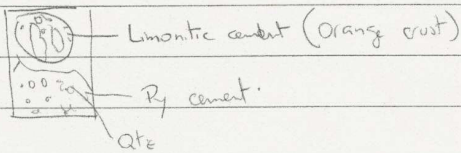 Limonitic cement (Orange crust)
Py cement.
Qtz